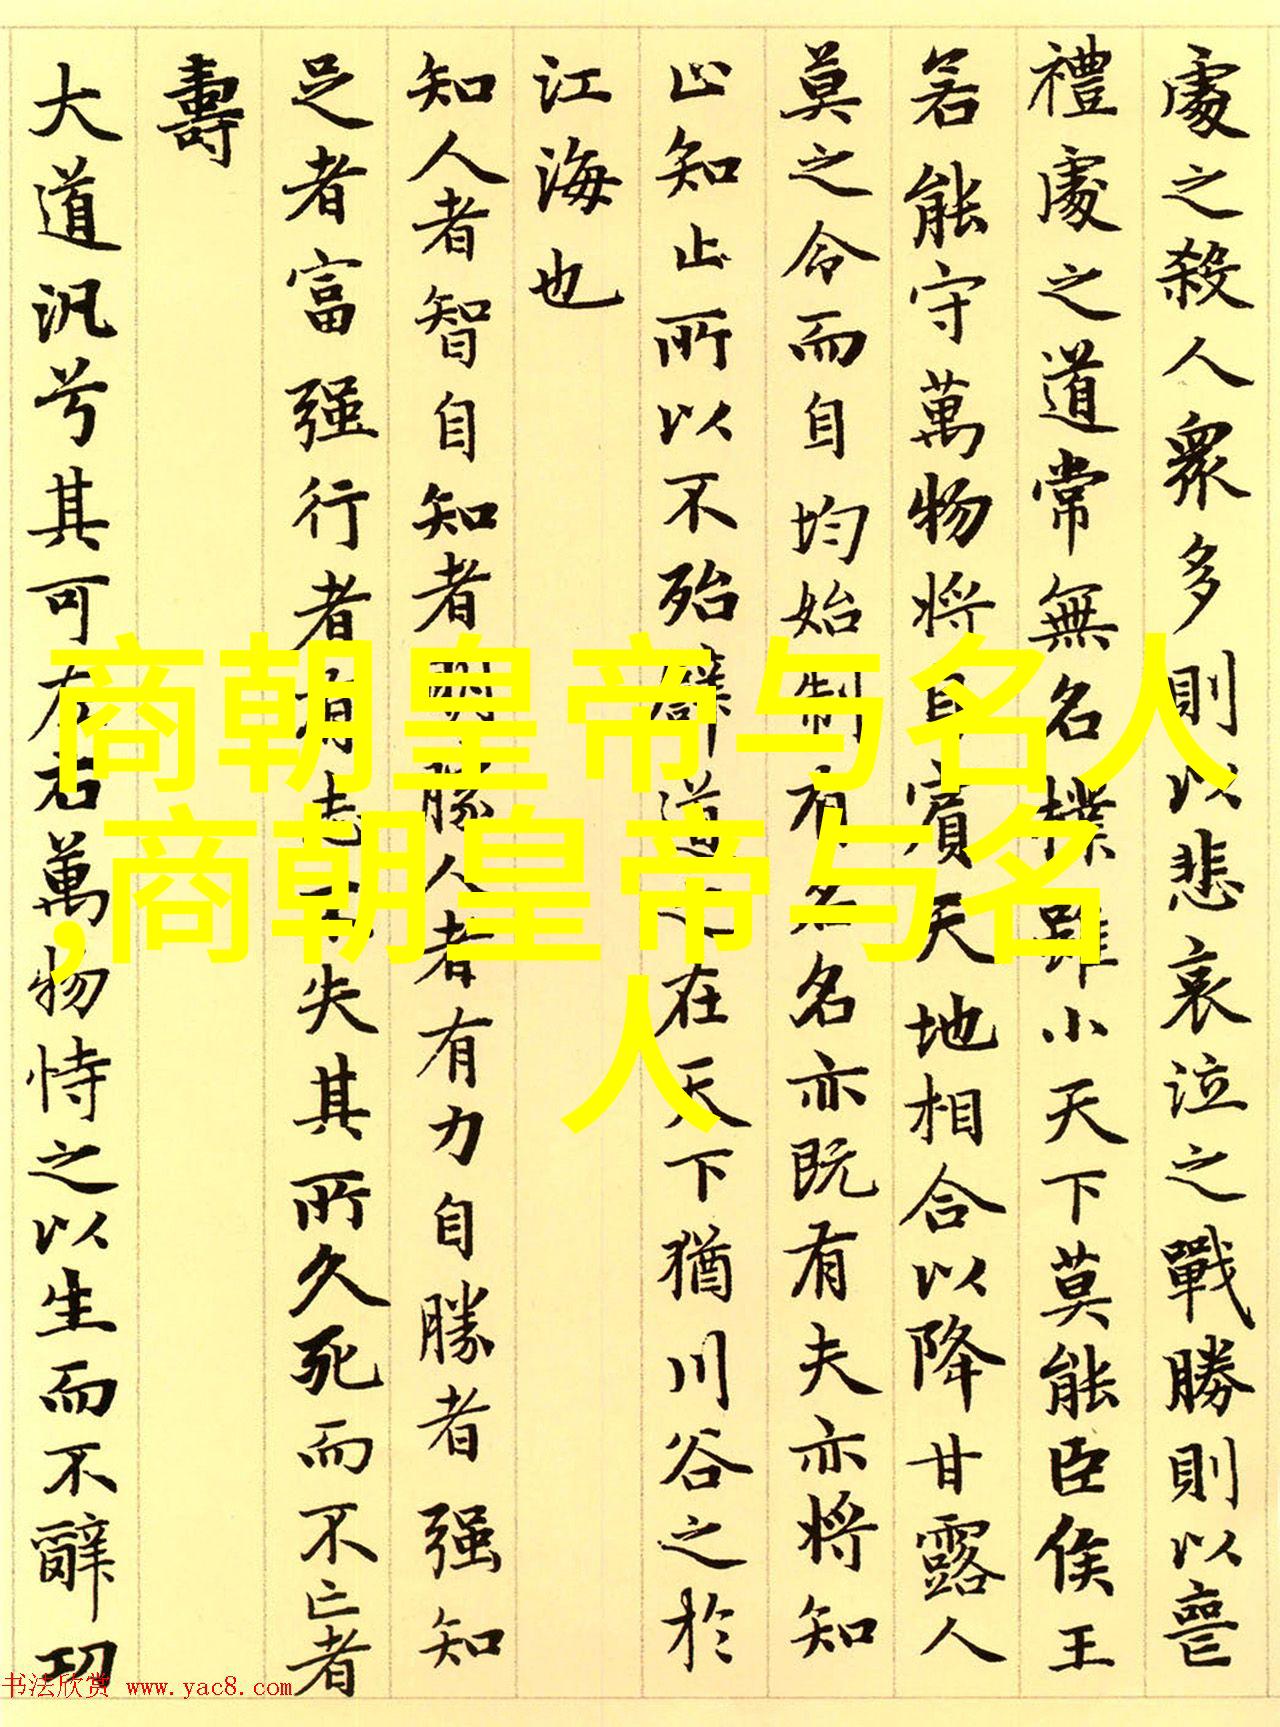 處之殺人衆多則以悲哀泣之戰勝則以喪
禮處之道常無名樸雖小天下莫能臣侯王
若能守萬物將自賓天地相合以降甘露人
莫之令而自均始制有名名亦既有夫亦將知
止知止所以不殆譬道之在天下猶川谷之於
江海也
知人者智自知者明勝人者有力自勝者强知
足者富强行者有志不失其所久死而不亡者
壽
大道汎兮其可左右萬物恃之以生而不辭功
商朝皇帝与名人
,商朝皇帝与名
人
书法欣赏 www.yac8.com